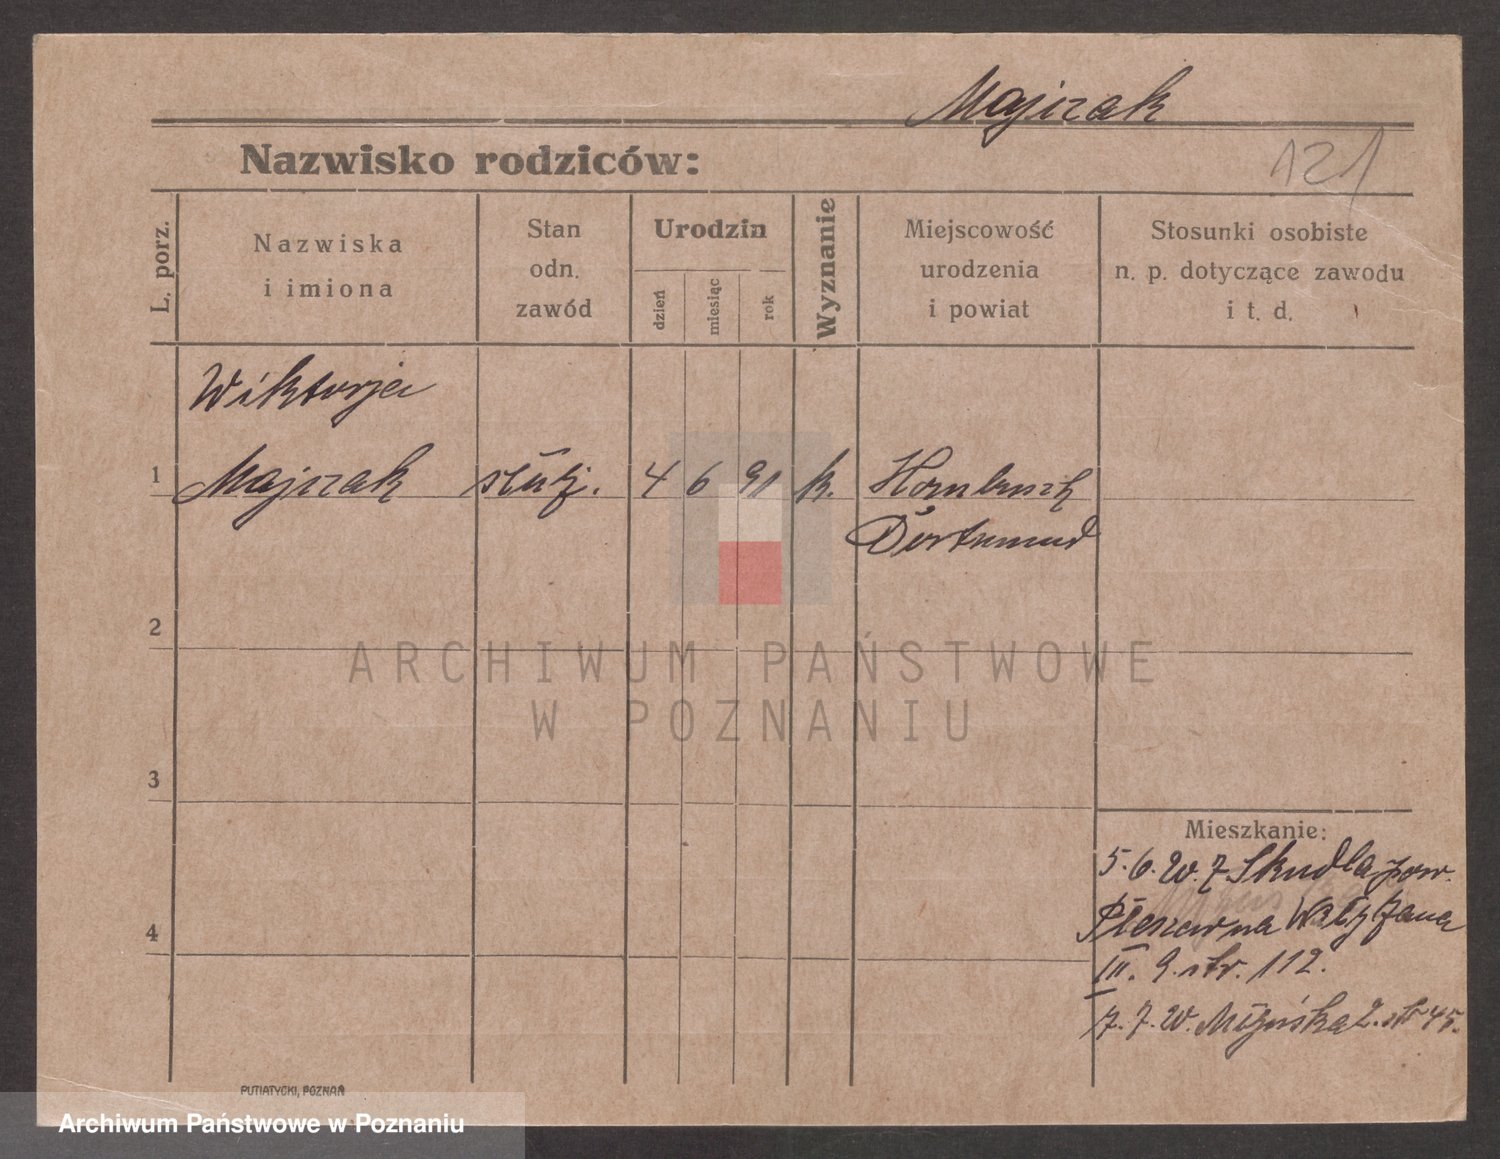 Majczak
Nazwisko rodziców:
121
L. porz.
Nazwiska
i imiona
Stan
odn.
zawód
Urodzin
dzień
miesiąc
rok
Wyznanie
Miejscowość
urodzenia
i powiat
Stosunki osobiste
n. p. dotyczące zawodu
i t. d.
Wiktorja
1 Majczak służ. 4 6 91 k. Hombruch
Dortmund
2
3
4
Mieszkanie:
5.6.20. z Skudla pow.
Pleszew na Wały Jana
III. 9. str. 112.
7.7.20. Młyńska 2. str 45.
PUTIATYCKI, POZNAŃ
ARCHIWUM PAŃSTWOWE
W POZNANIU
Archiwum Państwowe w Poznaniu